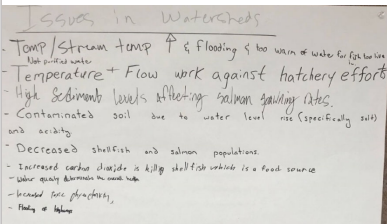 Issues in Watersheds
- Temp/Stream temp ↑ & flooding & too warm of water for fish too live
Not purified water
- Temperature + Flow work against hatchery effort
- High Sediment levels affecting salmon spawning rates.
- Contaminated soil due to water level rise (specifically salt)
and acidity
- Decreased shellfish and salmon populations.
- Increased carbon dioxide is killing shellfish which is a food source
- Water quality determinates the overall health
- Increased toxic
- Flooding of highways